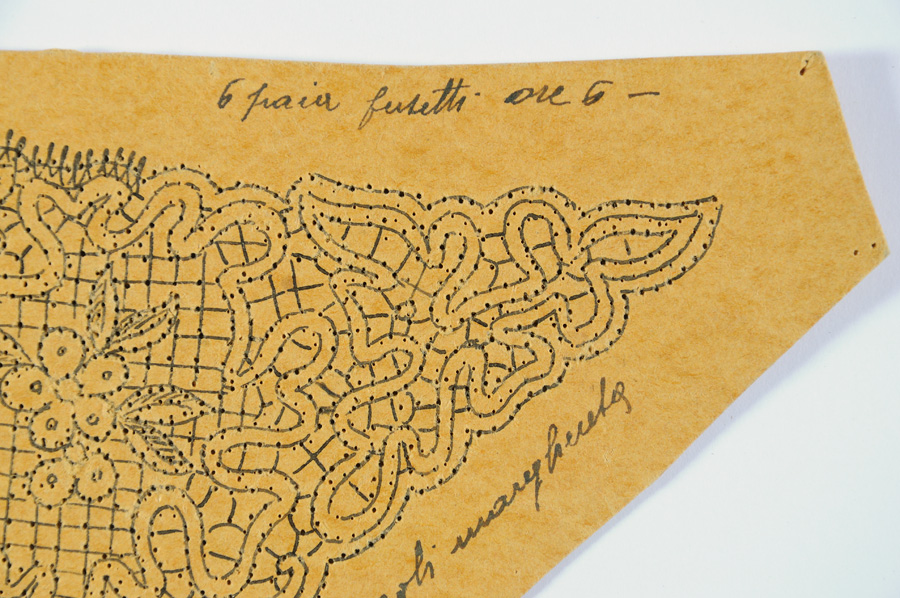 6 paia fusetti ore 6 —
margherita